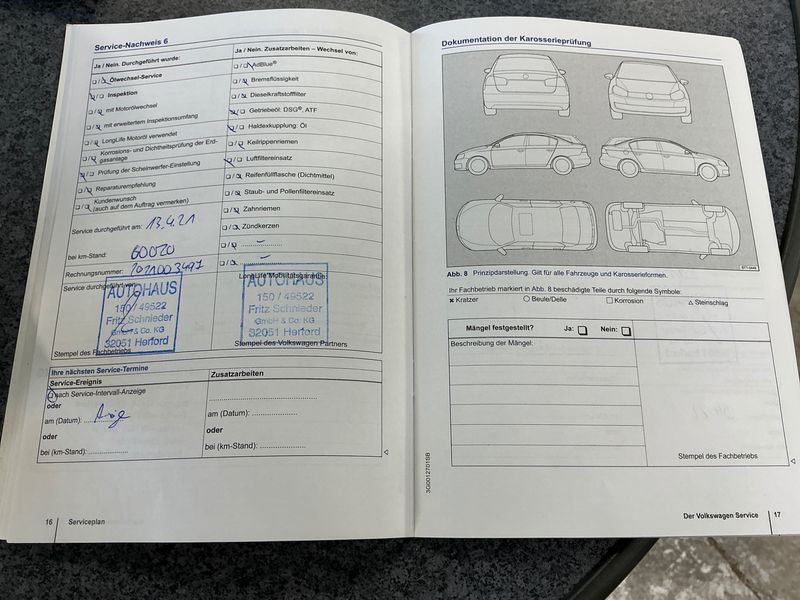 Service-Nachweis 6
Ja / Nein. Durchgeführt wurde:
Ölwechsel-Service
Inspektion
mit Motorölwechsel
mit erweitertem Inspektionsumfang
LongLife Motoröl verwendet
Korrosions- und Dichtheitsprüfung der Erd-
gasanlage
Prüfung der Scheinwerfer-Einstellung
Reparaturempfehlung
Kundenwunsch
(auch auf dem Auftrag vermerken)
Service durchgeführt am: 13.4.21
bei km-Stand: 60020
Rechnungsnummer: 2021003497
Service durchgeführt von:
AUTOHAUS
150 / 49522
Fritz Schnieder
GmbH & Co. KG
32051 Herford
Stempel des Fachbetriebs
Ja / Nein. Zusatzarbeiten – Wechsel von:
AdBlue®
Bremsflüssigkeit
Dieselkraftstofffilter
Getriebeöl: DSG®, ATF
Haldexkupplung: Öl
Keilrippenriemen
Luftfiltereinsatz
Reifenfüllflasche (Dichtmittel)
Staub- und Pollenfiltereinsatz
Zahnriemen
Zündkerzen
LongLife Mobilitätsgarantie:
AUTOHAUS
150 / 49522
Fritz Schnieder
GmbH & Co. KG
32051 Herford
Stempel des Volkswagen Partners
Ihre nächsten Service-Termine
Service-Ereignis
nach Service-Intervall-Anzeige
oder
am (Datum):
oder
bei (km-Stand): ....................
Zusatzarbeiten
am (Datum): ....................
oder
bei (km-Stand): ....................
16 Serviceplan
Dokumentation der Karosserieprüfung
Abb. 8 Prinzipdarstellung. Gilt für alle Fahrzeuge und Karosserieformen.
Ihr Fachbetrieb markiert in Abb. 8 beschädigte Teile durch folgende Symbole:
× Kratzer ○ Beule/Delle □ Korrosion △ Steinschlag
Mängel festgestellt? Ja: □ Nein: □
Beschreibung der Mängel:
Stempel des Fachbetriebs
3G0012701SB
Der Volkswagen Service 17